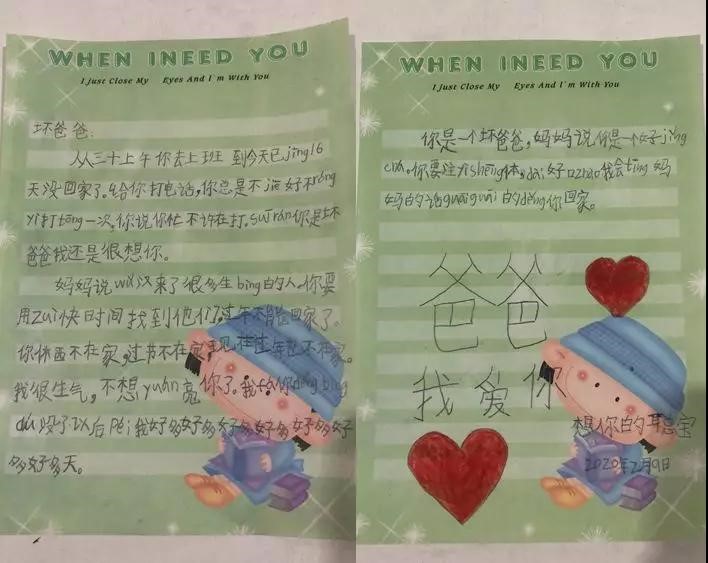 WHEN INEED YOU
I Just Close My Eyes And I'm With You
坏爸爸:
从三十上午你去上班 到今天已jīng16
天没回家了。给你打电话,你总是不jiē好不róng
yì打tōng一次,你说你忙不许在打。suī rán你是坏
爸爸我还是很想你。
妈妈说wǔ汉来了很多生bìng的人。你要
用zuì快时间找到他们,过年不能回家了。
你休西不在家,过节不在家,现在过年也不在家。
我很生气,不想yuán亮你了。我fá你děng bìng
dú没了以后péi我好多好多好多好多好多好
多好多天。
WHEN INEED YOU
I Just Close My Eyes And I'm With You
你是一个坏爸爸,妈妈说你是一个好jǐng
chá。你要注yì shēng体,dài好口zhào我会tīng妈
妈的话guāi guāi的děng你回家。
爸爸
我爱你
想你的
2020年2月9日